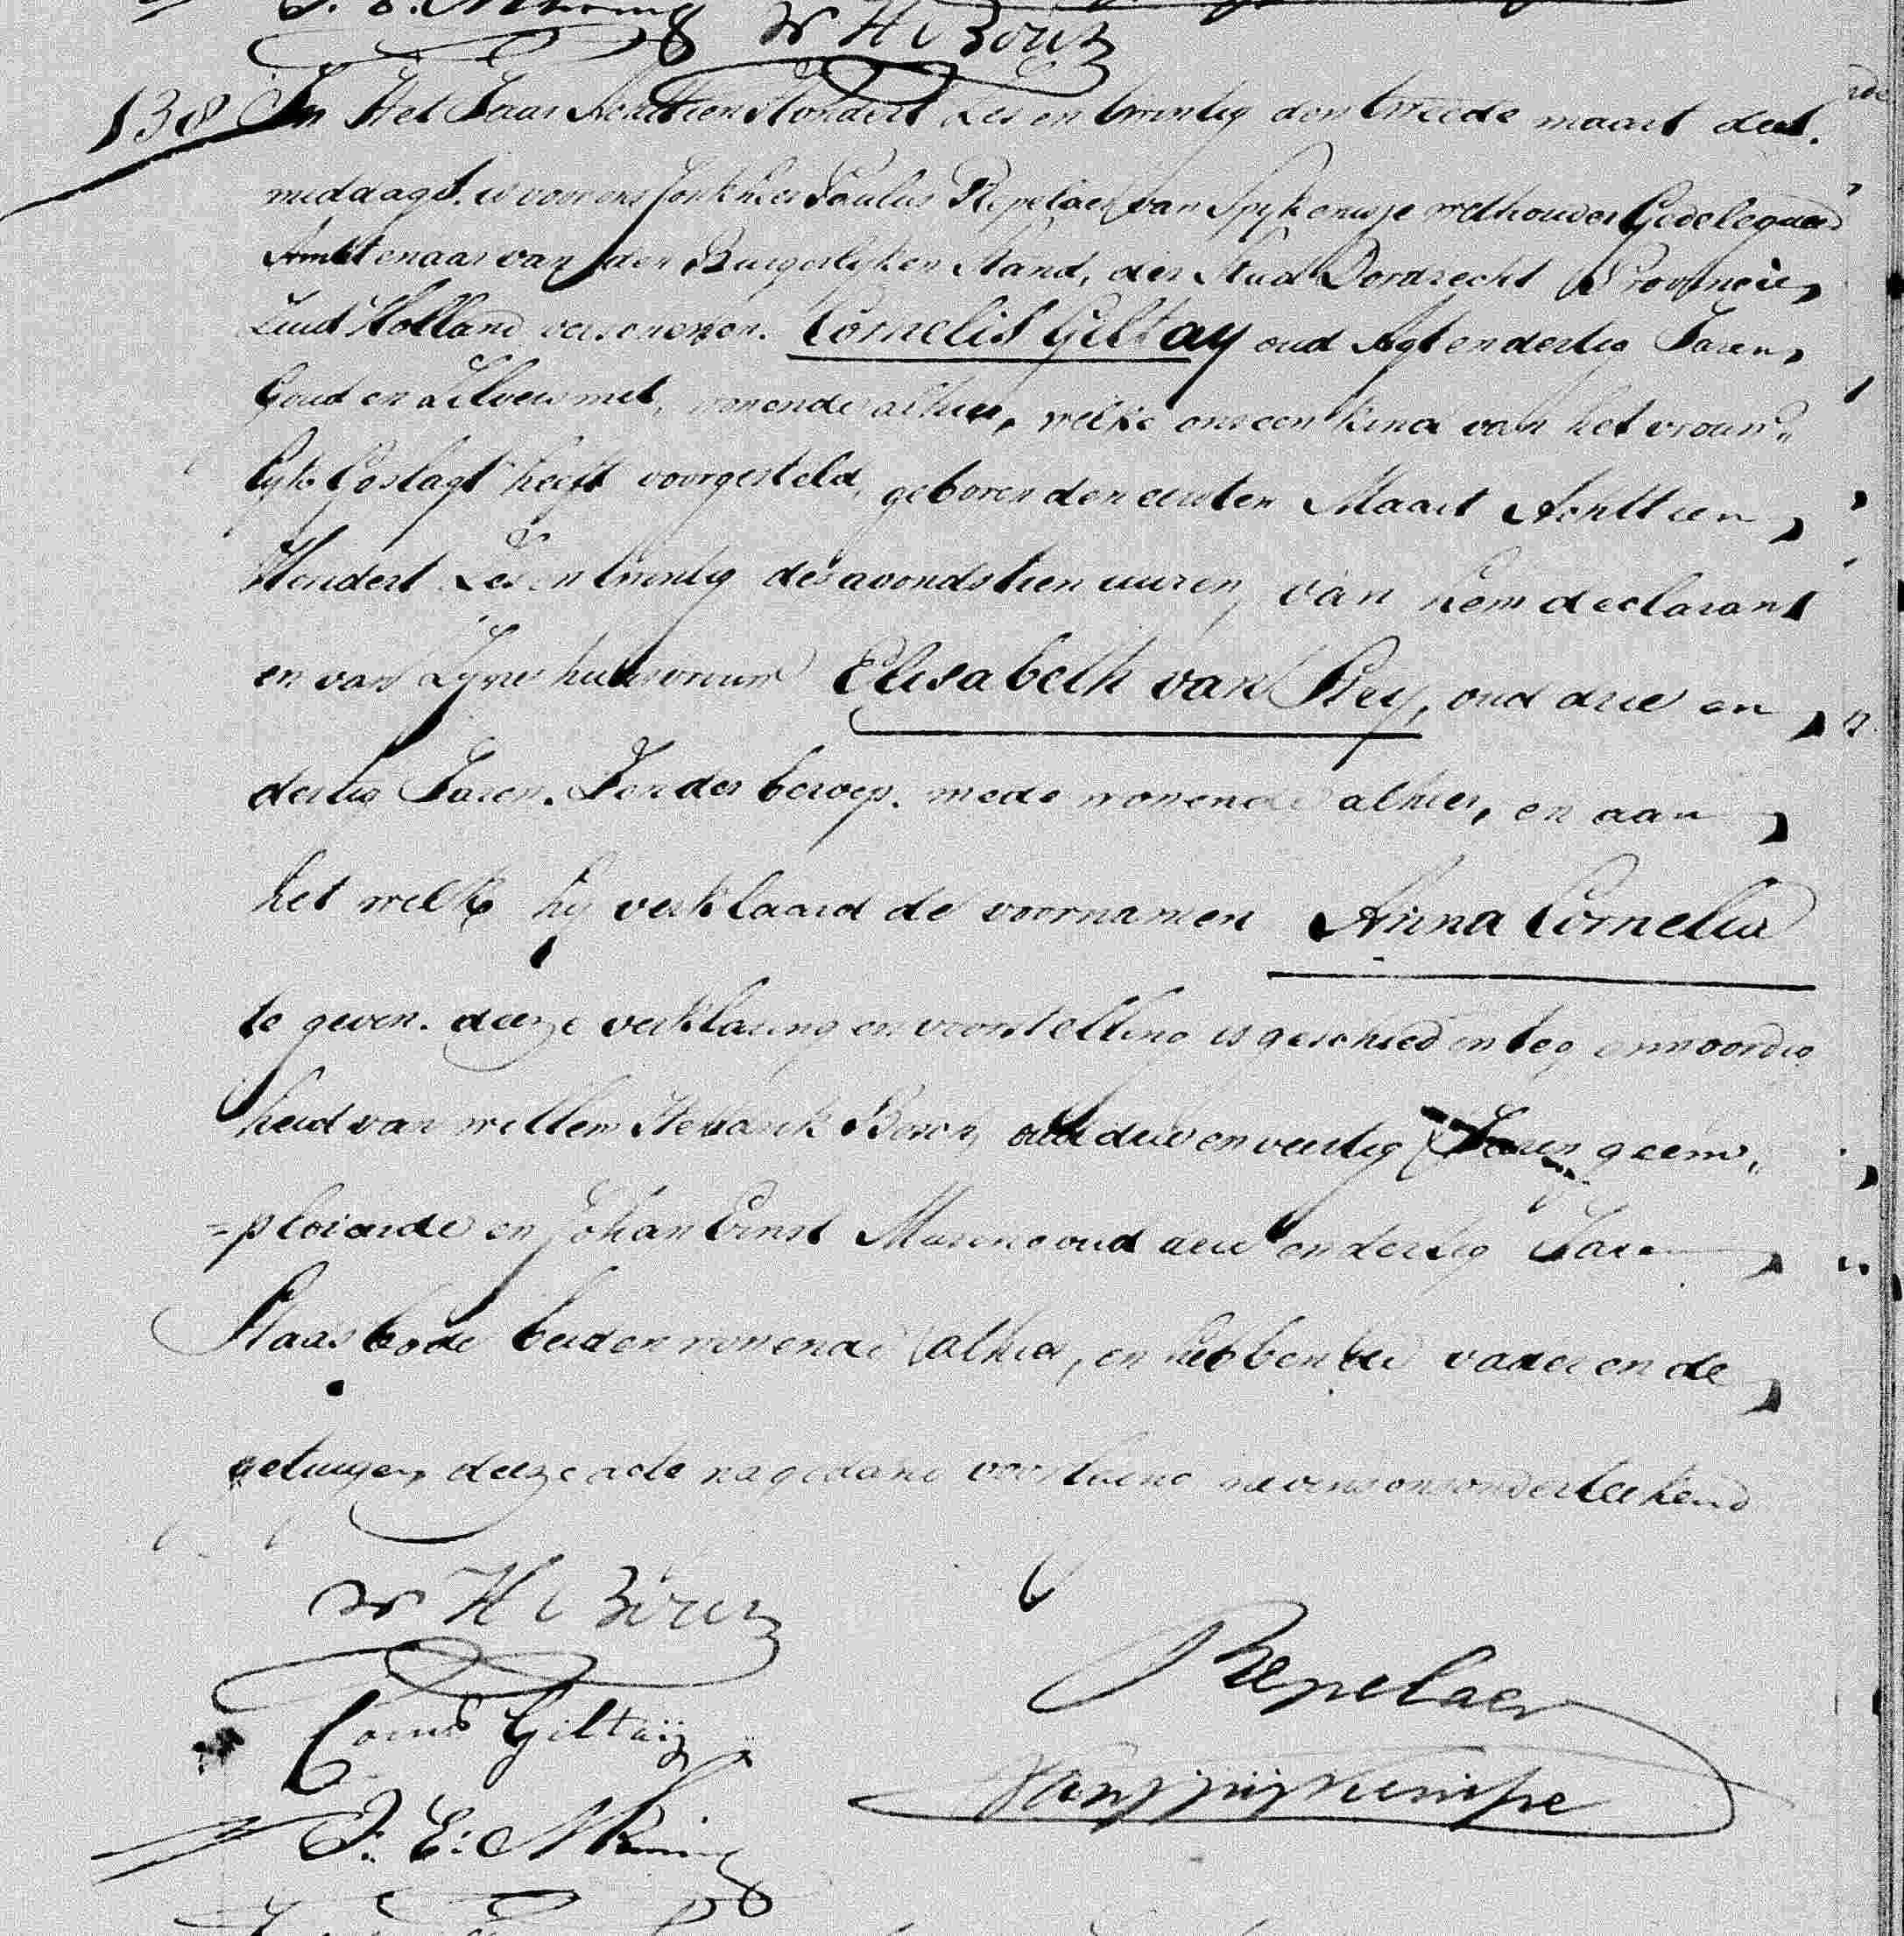 138 In Het Jaar Achttien Hondert Zes en twintig den tweede maart des
middaags. is voor ons Jonkheer Paulus Repelaer van Spykenisse wethouder Gedelegueerd
Amtenaar van den Burgerlyken Stand, der Stad Dordrecht Provincie
Zuid Holland verschenen. Cornelis Giltay oud Agt en dertig Jaren,
Goud en Zilversmit, wonende alhier, welke ons een kind van het vrouw
lyk Geslagt heeft voorgesteld, geboren den eersten Maart Achttien
Hondert Zes en twintig des avonds tien uuren, van hem declarant
en van Zyne huisvrouw Elisabeth van Rey, oud drie en
dertig Jaren. Zonder beroep. mede wonende alhier, en aan
het welke hy verklaard de voornamen Anna Cornelia
te geven. deeze verklaring en voorstelling is geschied in teg enwoordig
heid van willem Hen Boron oud drie en veertig Jaren geëm
=ploieerde en Johan Ernst oud drie en dertig Jaren
beiden wonende alhier, en hebben de vader en de
getuigen deeze acte na gedane voorlezing nevens ons onderteekend
W H
Corns Giltaij
J. E.
Repelaer
van spijkenisse